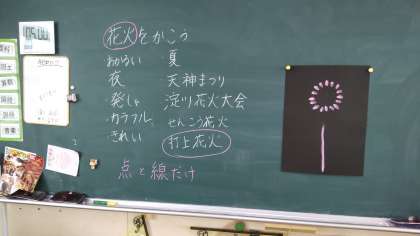 花火をかこう
・あかるい ・夏
・夜 ・天神まつり
・発しゃ ・淀川花火大会
・カラフル ・せんこう花火
・きれい ・打上花火
点と線だけ